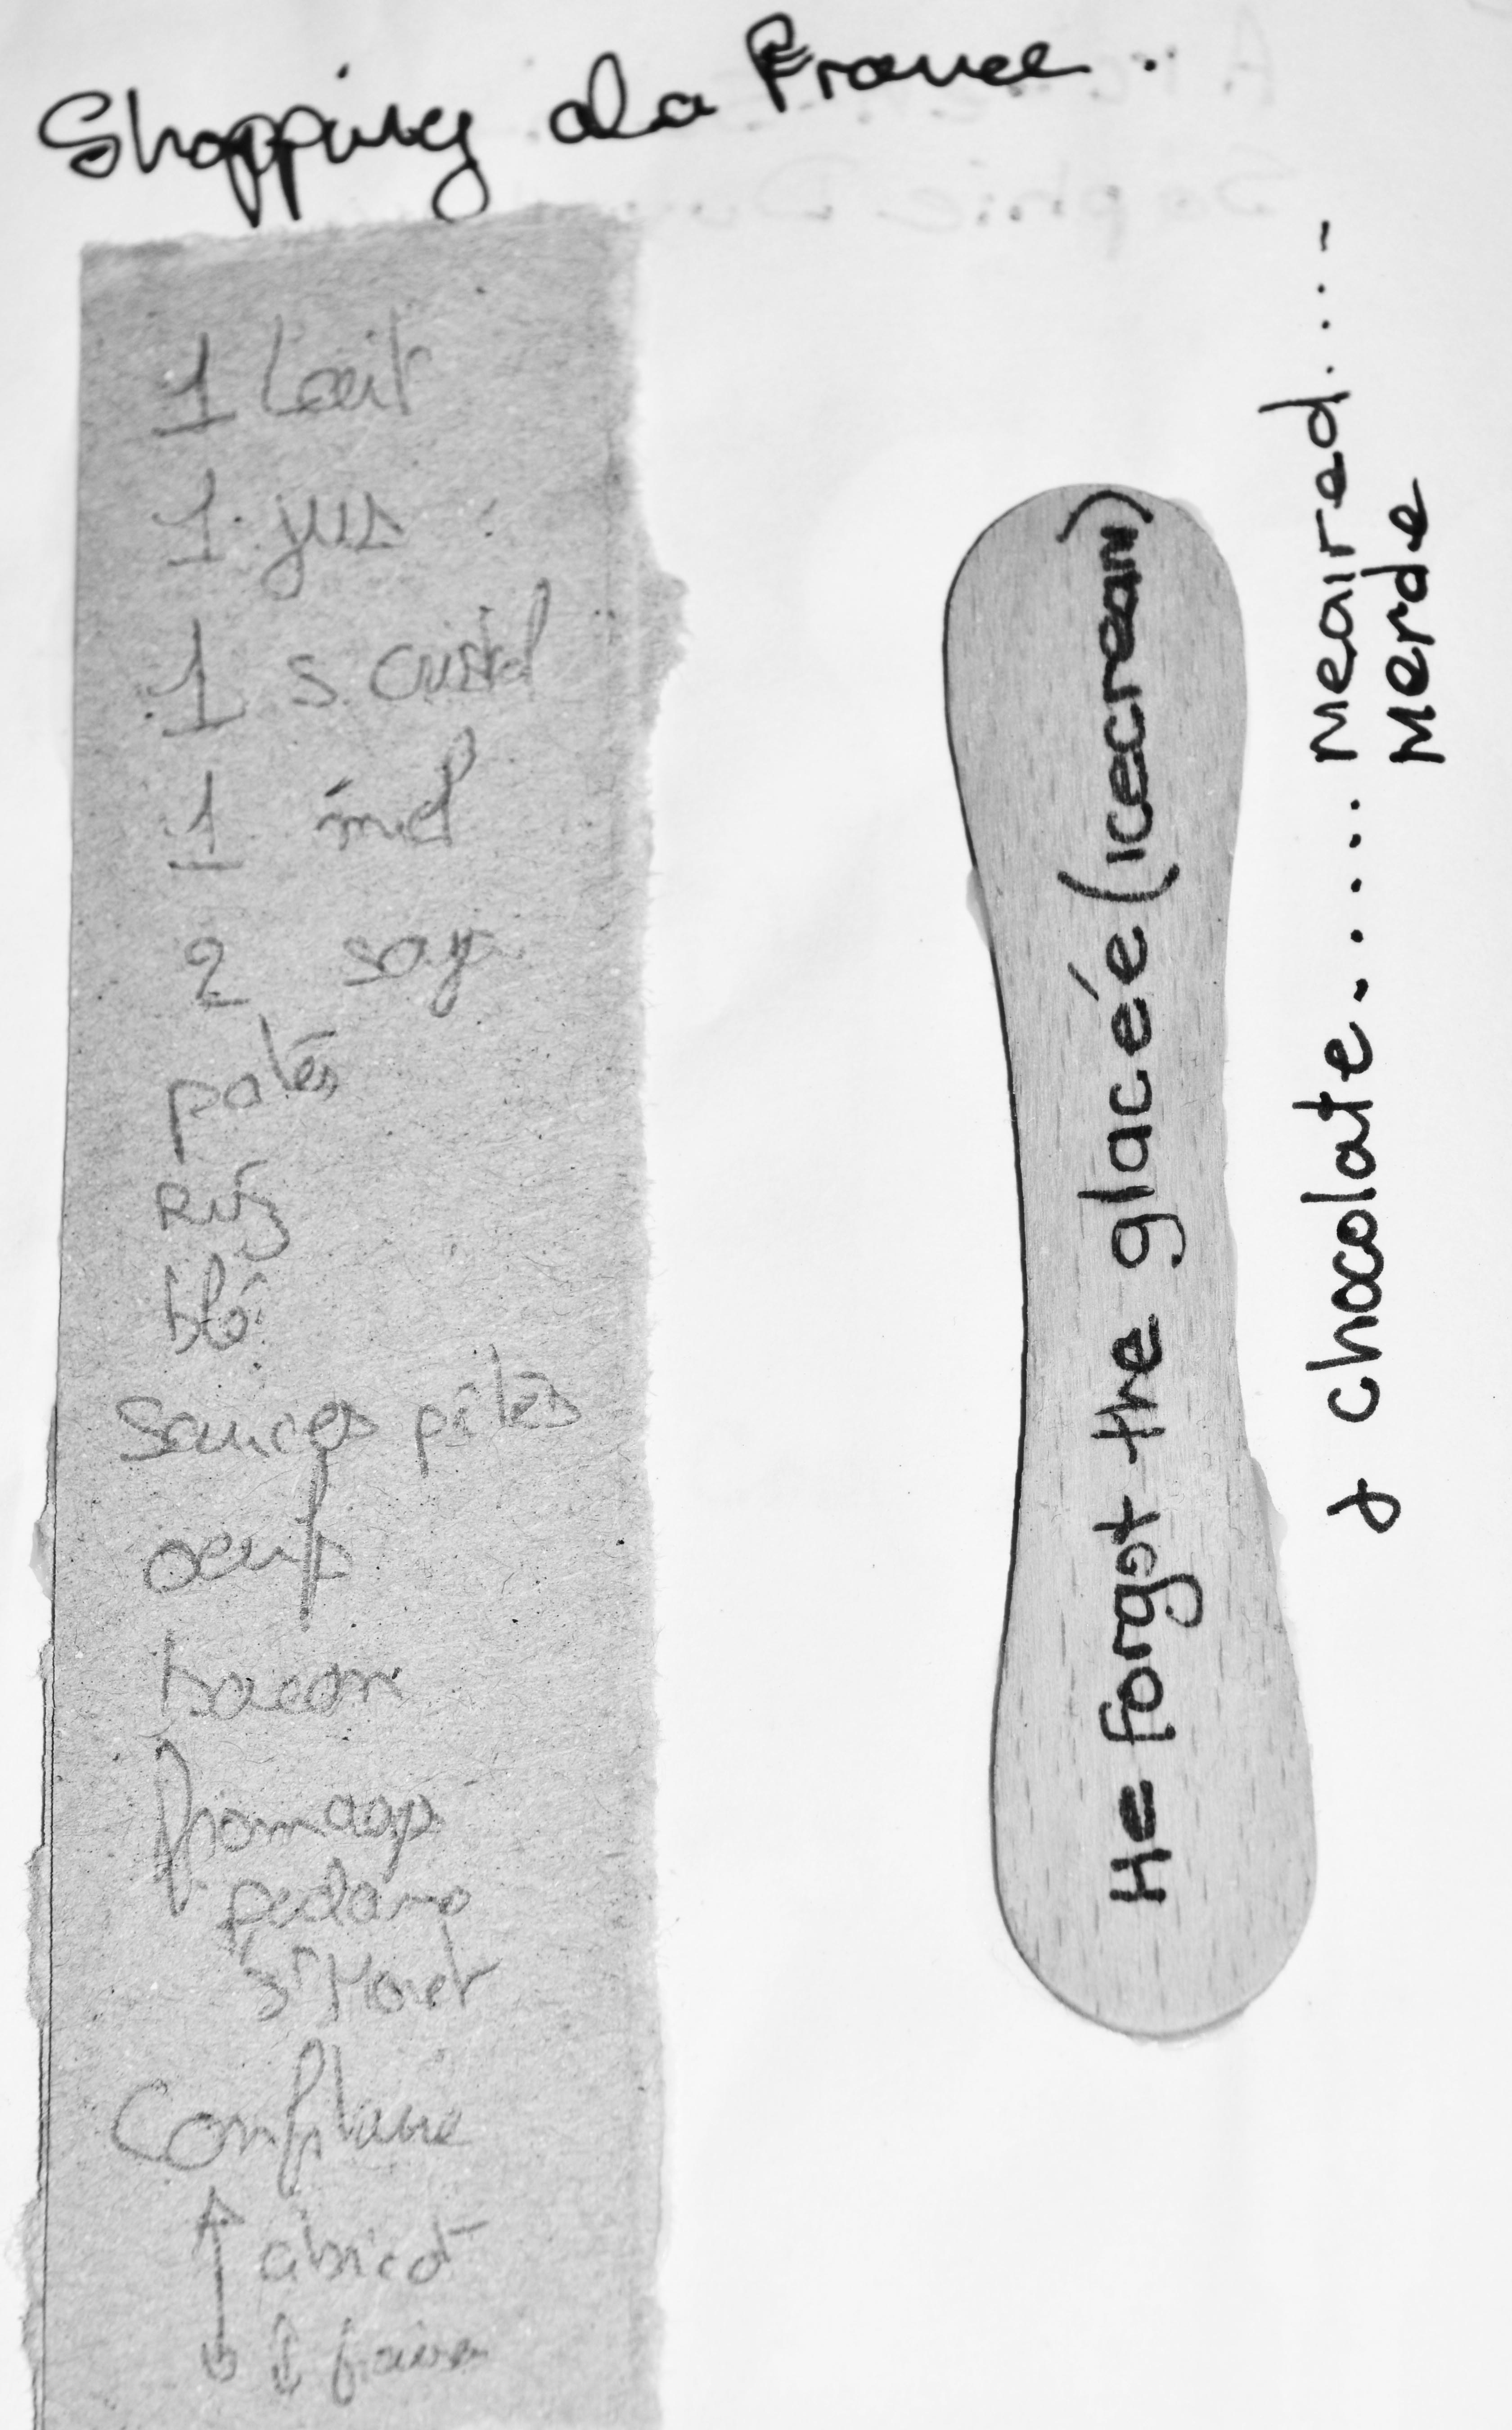 Shopping ala France.
1 Lait
1 jus
1 S. Cristal
1 miel
2 soja
patês
Riz
blé
Sauces pâtes
oeufs
bacon
fromage
St Moret
Confiture
abricot
fraise
He forgot the glacée (icecream)
& chocolate...... Meaired....-
Merde